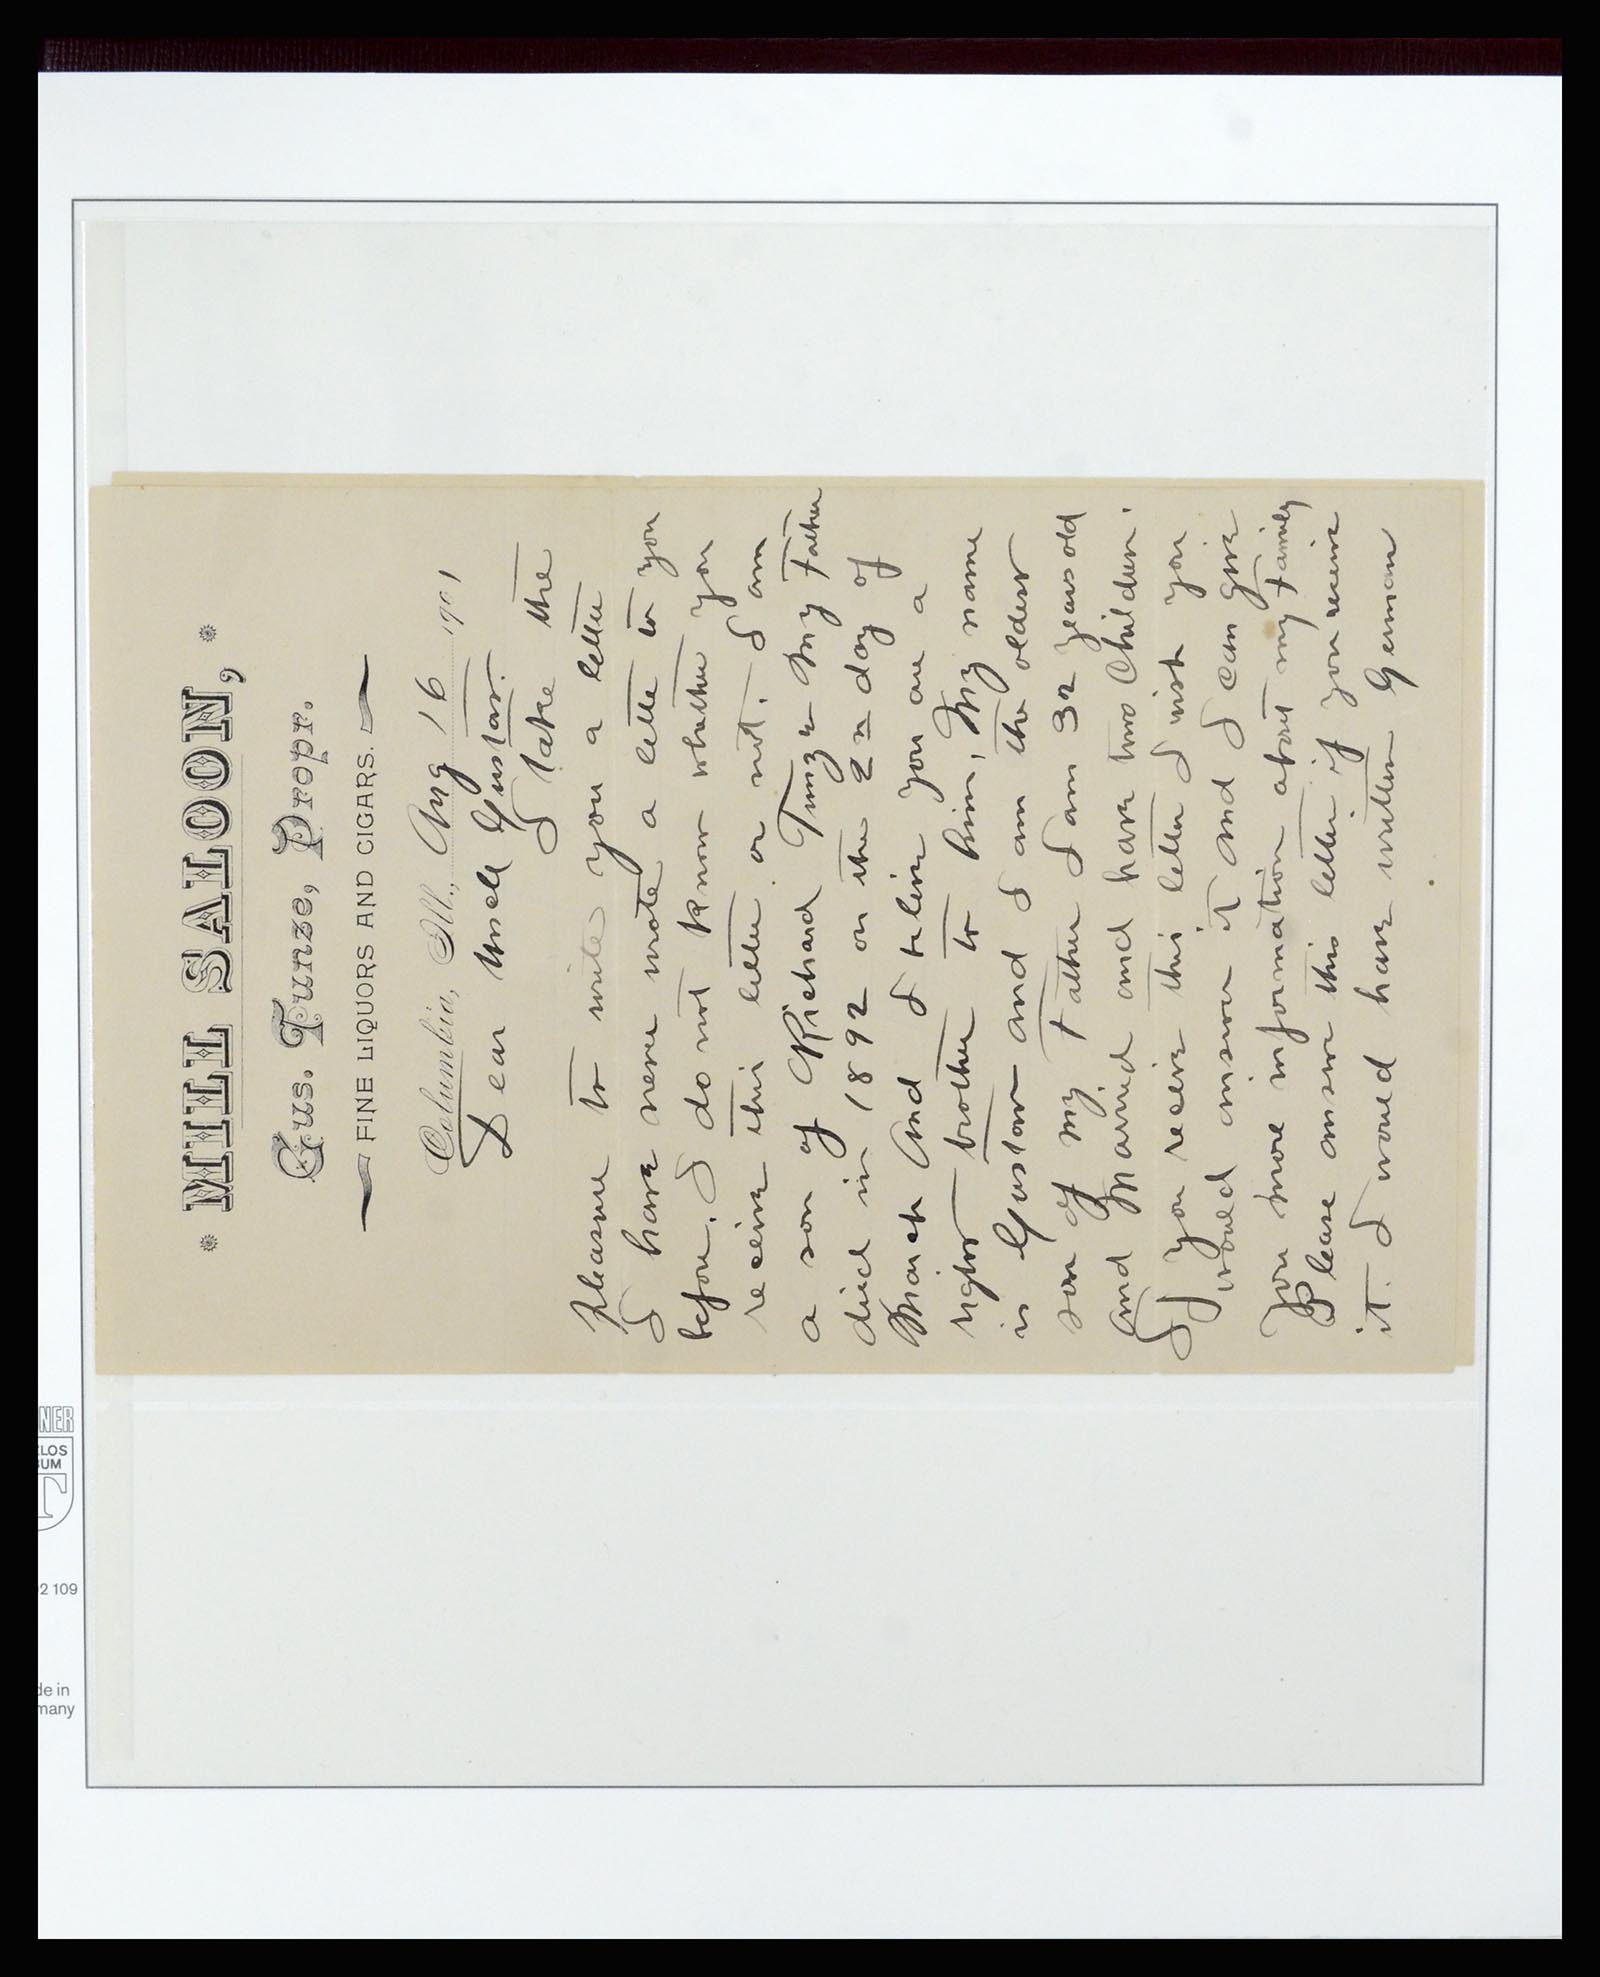 MILL SALOON,
Gus. Tunze, Propr.
FINE LIQUORS AND CIGARS.
Columbia, Ill., Aug 16 1901
Dear Uncle Gustav.
I take the
pleasure to write you a letter
I have never wrote a letter to you
before. I do not know whether you
receive this letter or not. I am
a son of Richard Tunze My Father
died in 1892 on the 2n day of
March And I beline you are a
right brother to him, My name
is Gustav and I am the oldest
son of my Father I am 32 years old
And Married and have two Children.
If you receive this letter I wish you
would answer it and I can give
you more information about my Family
Please answer this letter if you receive
it. I would have written German
NER
LOS
BUM
2 109
de in
many